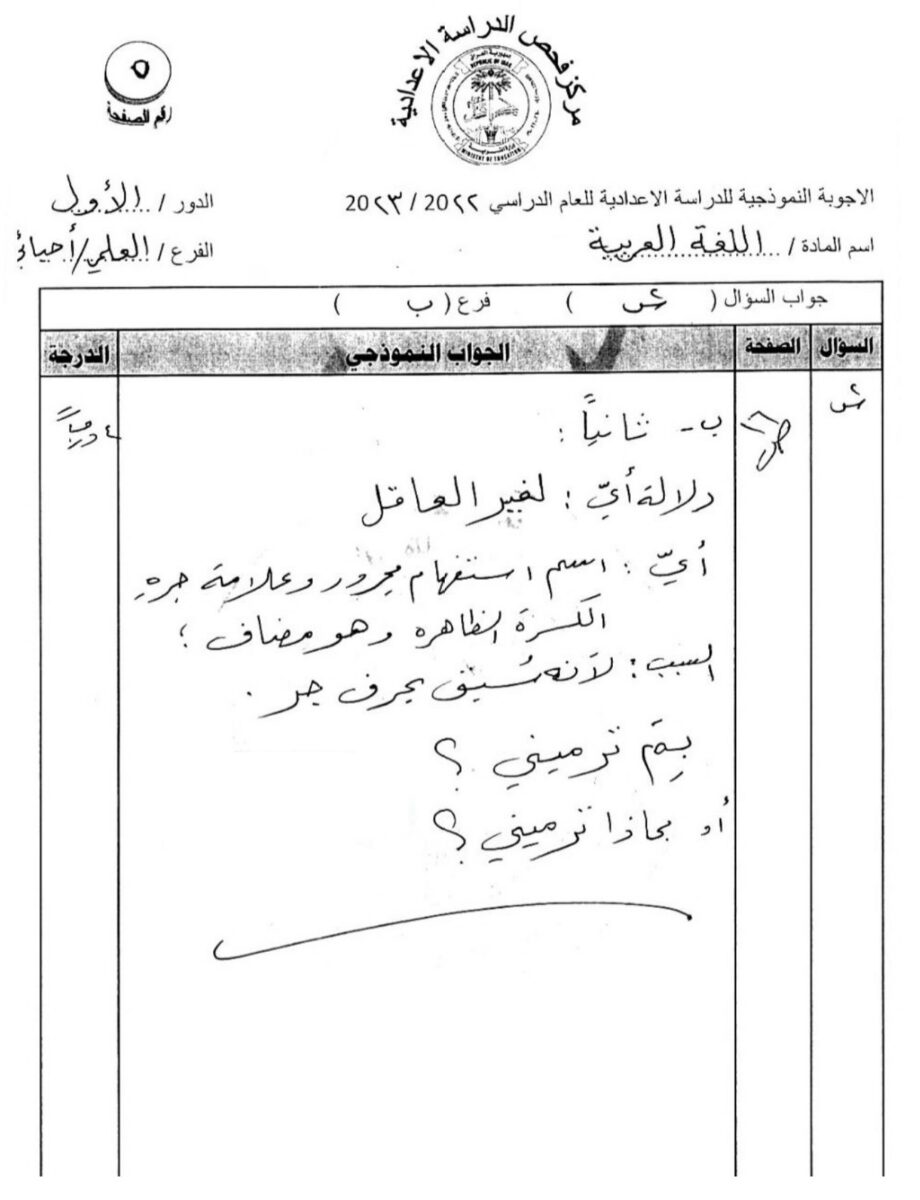 مركز فحص الدراسة الاعدادية
جمهورية العراق
REPUBLIC OF IRAQ
MINISTRY OF EDUCATION
٥
رقم الصفحة
الاجوبة النموذجية للدراسة الاعدادية للعام الدراسي ٢٠٢٢ / ٢٠٢٣
الدور / الأول
اسم المادة / اللغة العربية
الفرع / العلمي/أحيائي
جواب السؤال ( ) فرع ( ب )
السؤال الصفحة الجواب النموذجي الدرجة
ب - ثانياً :
دلالة أيّ : لغير العاقل
أيّ : اسم استفهام مجرور وعلامة جره
الكسرة الظاهره وهو مضاف ؛
السبب : لأنه سُبق بحرف جر .
بِمَ ترميني ؟
أو بماذا ترميني ؟